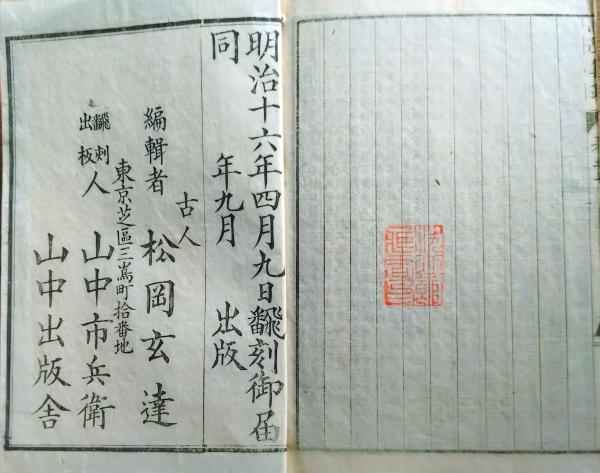 明治十六年四月九日飜刻御届
同年九月出版
古人
編輯者 松岡玄達
東京芝區三嶌町拾番地
飜刻出板人 山中市兵衛
山中出版舎